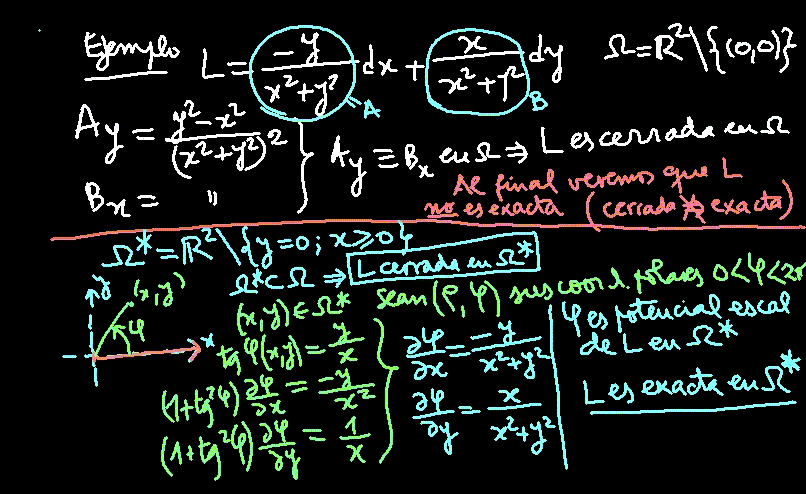 Ejemplo L = \frac{-y}{x²+y²} dx + \frac{x}{x²+y²} dy Ω = ℝ² \ {(0,0)}
A B
A_y = \frac{y²-x²}{(x²+y²)²} } A_y ≡ B_x en Ω ⇒ L es cerrada en Ω
B_x = "
Al final veremos que L
no es exacta (cerrada ⇏ exacta)
Ω* = ℝ² \ {y=0; x≥0}
Ω* ⊂ Ω ⇒ L cerrada en Ω*
(x,y) ∈ Ω* sean (ρ, φ) sus coord. polares 0<φ<2π
y (x,y) φ x
tg φ(x,y) = \frac{y}{x}
(1+tg²φ) \frac{∂φ}{∂x} = \frac{-y}{x²}
(1+tg²φ) \frac{∂φ}{∂y} = \frac{1}{x}
\frac{∂φ}{∂x} = \frac{-y}{x²+y²}
\frac{∂φ}{∂y} = \frac{x}{x²+y²}
φ es potencial escal
de L en Ω*
L es exacta en Ω*